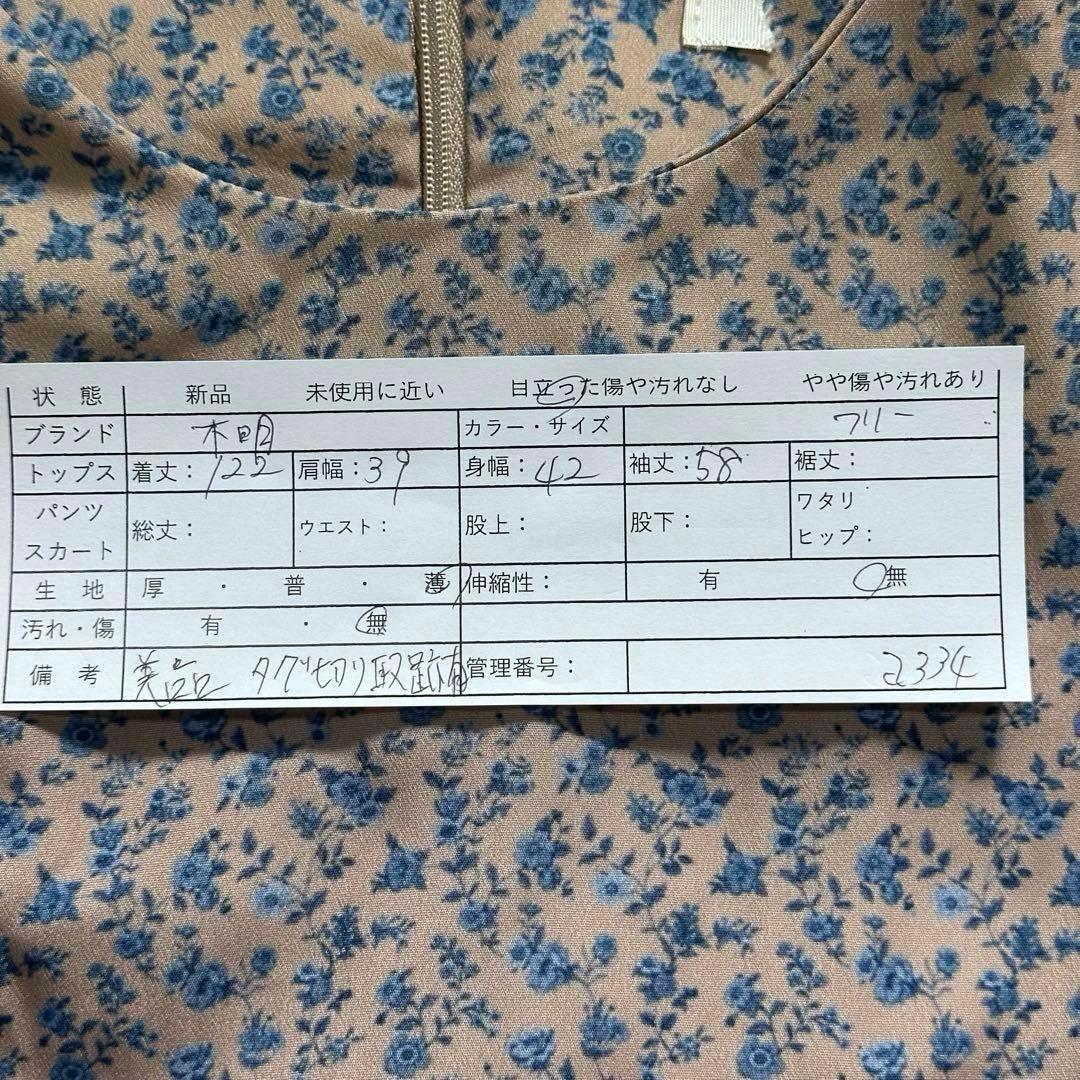 状態 新品 未使用に近い 目立った傷や汚れなし やや傷や汚れあり
ブランド 不明 カラー・サイズ フリー
トップス 着丈:122 肩幅:39 身幅:42 袖丈:58 裾丈:
パンツ スカート 総丈: ウエスト: 股上: 股下: ワタリ ヒップ:
生地 厚・普・薄 伸縮性: 有 無
汚れ・傷 有・無
備考 美品 タグ切り取跡有 管理番号: 2334